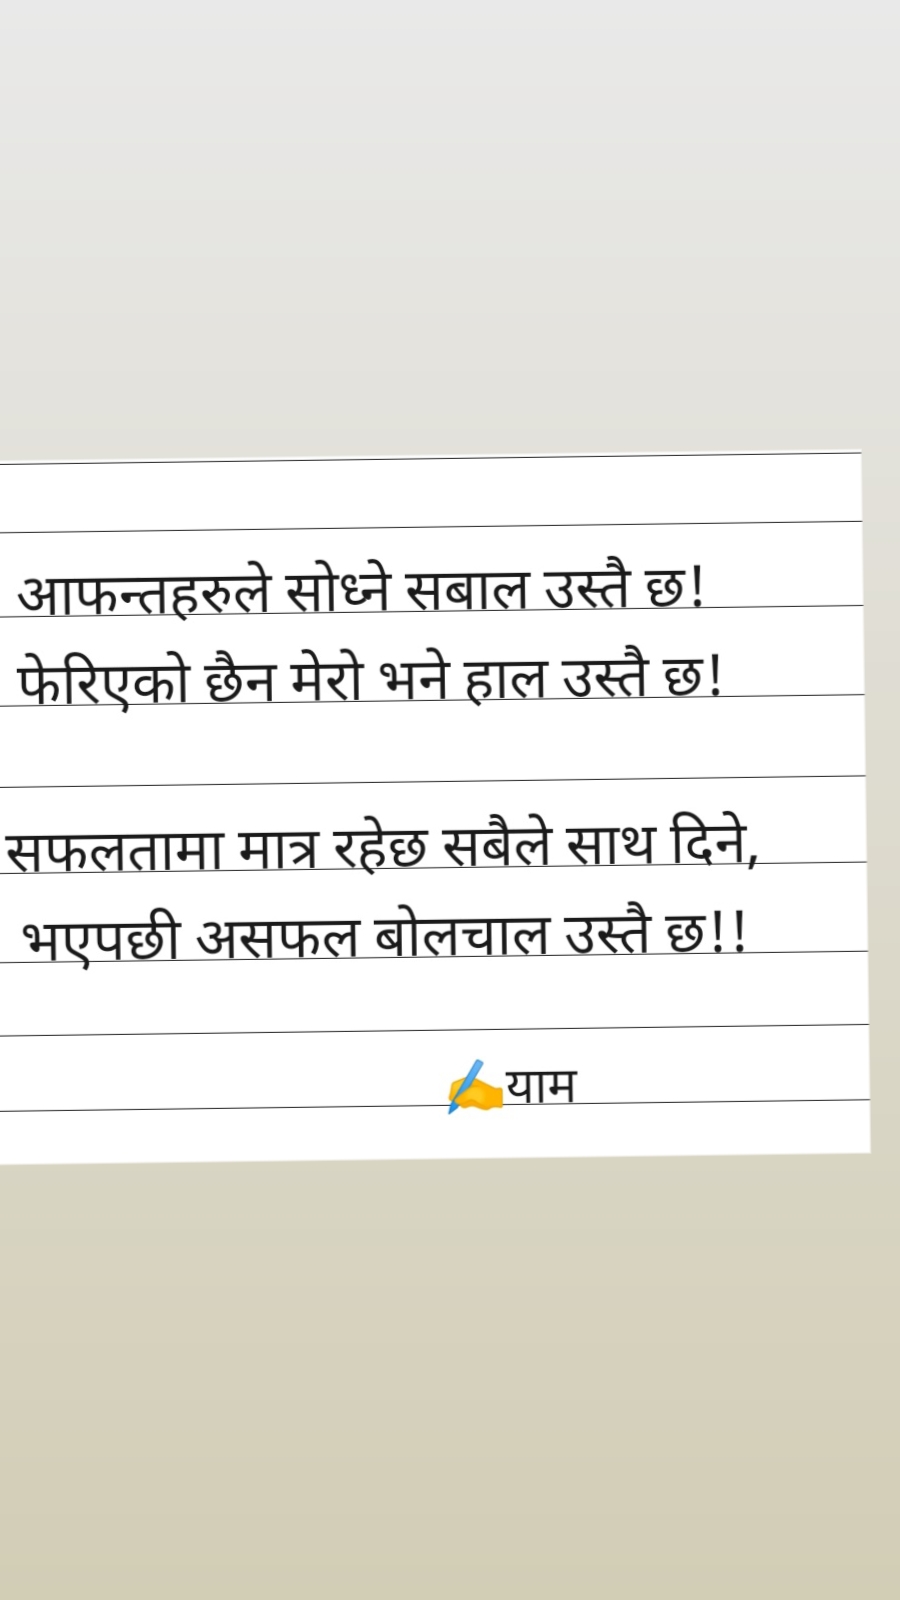 आफन्तहरुले सोध्ने सबाल उस्तै छ!
फेरिएको छैन मेरो भने हाल उस्तै छ!
सफलतामा मात्र रहेछ सबैले साथ दिने,
भएपछी असफल बोलचाल उस्तै छ!!
✍️याम